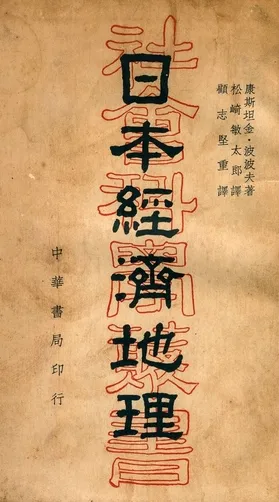 康斯坦金·波波夫著
松崎敏太郎譯
顧志堅重譯
日本經濟地理
社會科學叢書
中華書局印行